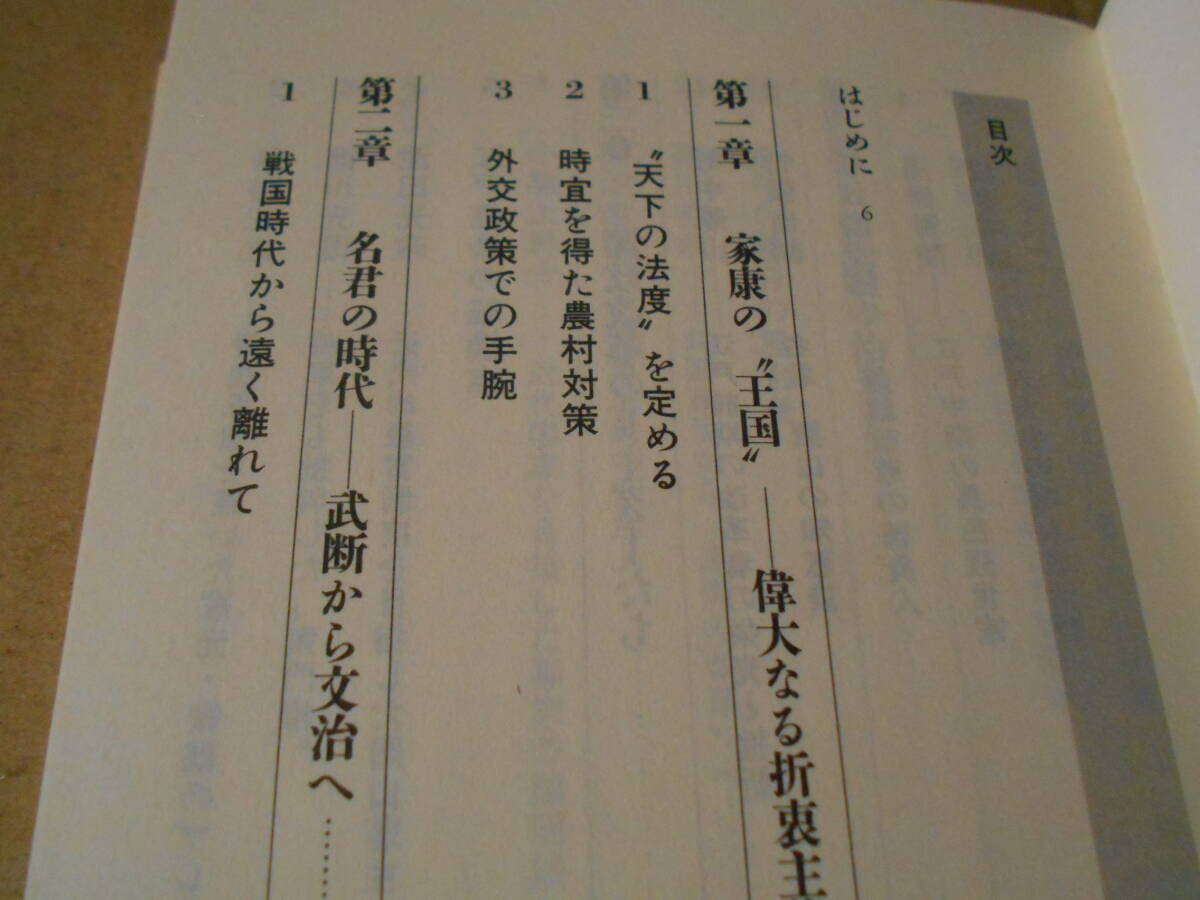 目次
はじめに 6
第一章 家康の〝王国〟――偉大なる折衷主
1 〝天下の法度〟を定める
2 時宜を得た農村対策
3 外交政策での手腕
第二章 名君の時代――武断から文治へ………
1 戦国時代から遠く離れて